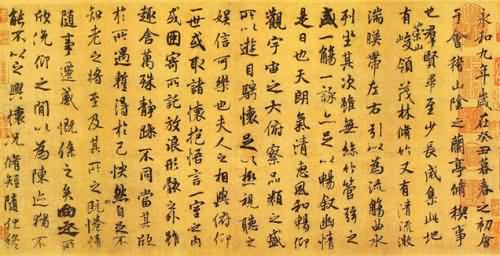 永和九年歲在癸丑暮春之初會
于會稽山陰之蘭亭脩稧事
也羣賢畢至少長咸集此地
有崇山峻領茂林脩竹又有清流激
湍暎帶左右引以為流觴曲水
列坐其次雖無絲竹管弦之
盛一觴一詠亦足以暢敘幽情
是日也天朗氣清惠風和暢仰
觀宇宙之大俯察品類之盛
所以遊目騁懷足以極視聽之
娛信可樂也夫人之相與俯仰
一世或取諸懷抱悟言一室之內
或因寄所託放浪形骸之外雖
趣舍萬殊靜躁不同當其欣
於所遇蹔得於己快然自足不
知老之將至及其所之既惓情
隨事遷感慨係之矣向之所
欣俛仰之間以為陳迹猶不
能不以之興懷況脩短隨化終